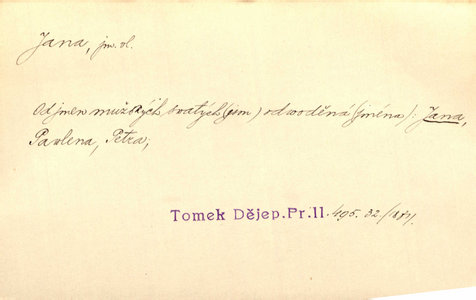 Jana, jm. vl.
Od jmen mužských svatých (jsou) odvoděná (jména): Jana,
Pavlena, Petra,
Tomek Dějep. Pr. II. 495. 32/1871.